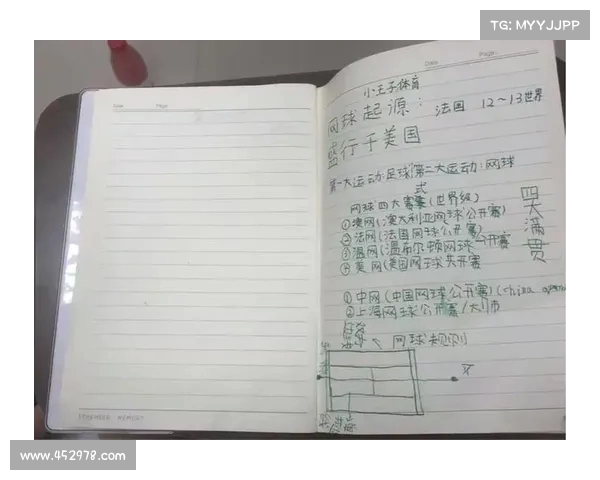 TG: MYYJJPP
Date
Page
Date
Page
小王子体育
网球起源：法国 12～13世界
盛行于美国
第一大运动:足球 第二大运动:网球
式
网球四大赛事(世界级)
四大满贯
①澳网(澳大利亚网球公开赛)
②法网(法国网球公开赛)
③温网(温布尔顿网球公开赛
④美网(美国网球公开赛
①中网(中国网球公开赛)(china open
②上海网球公开赛/大师
网球规则
REMEMBER MEMORY
www.452978.com